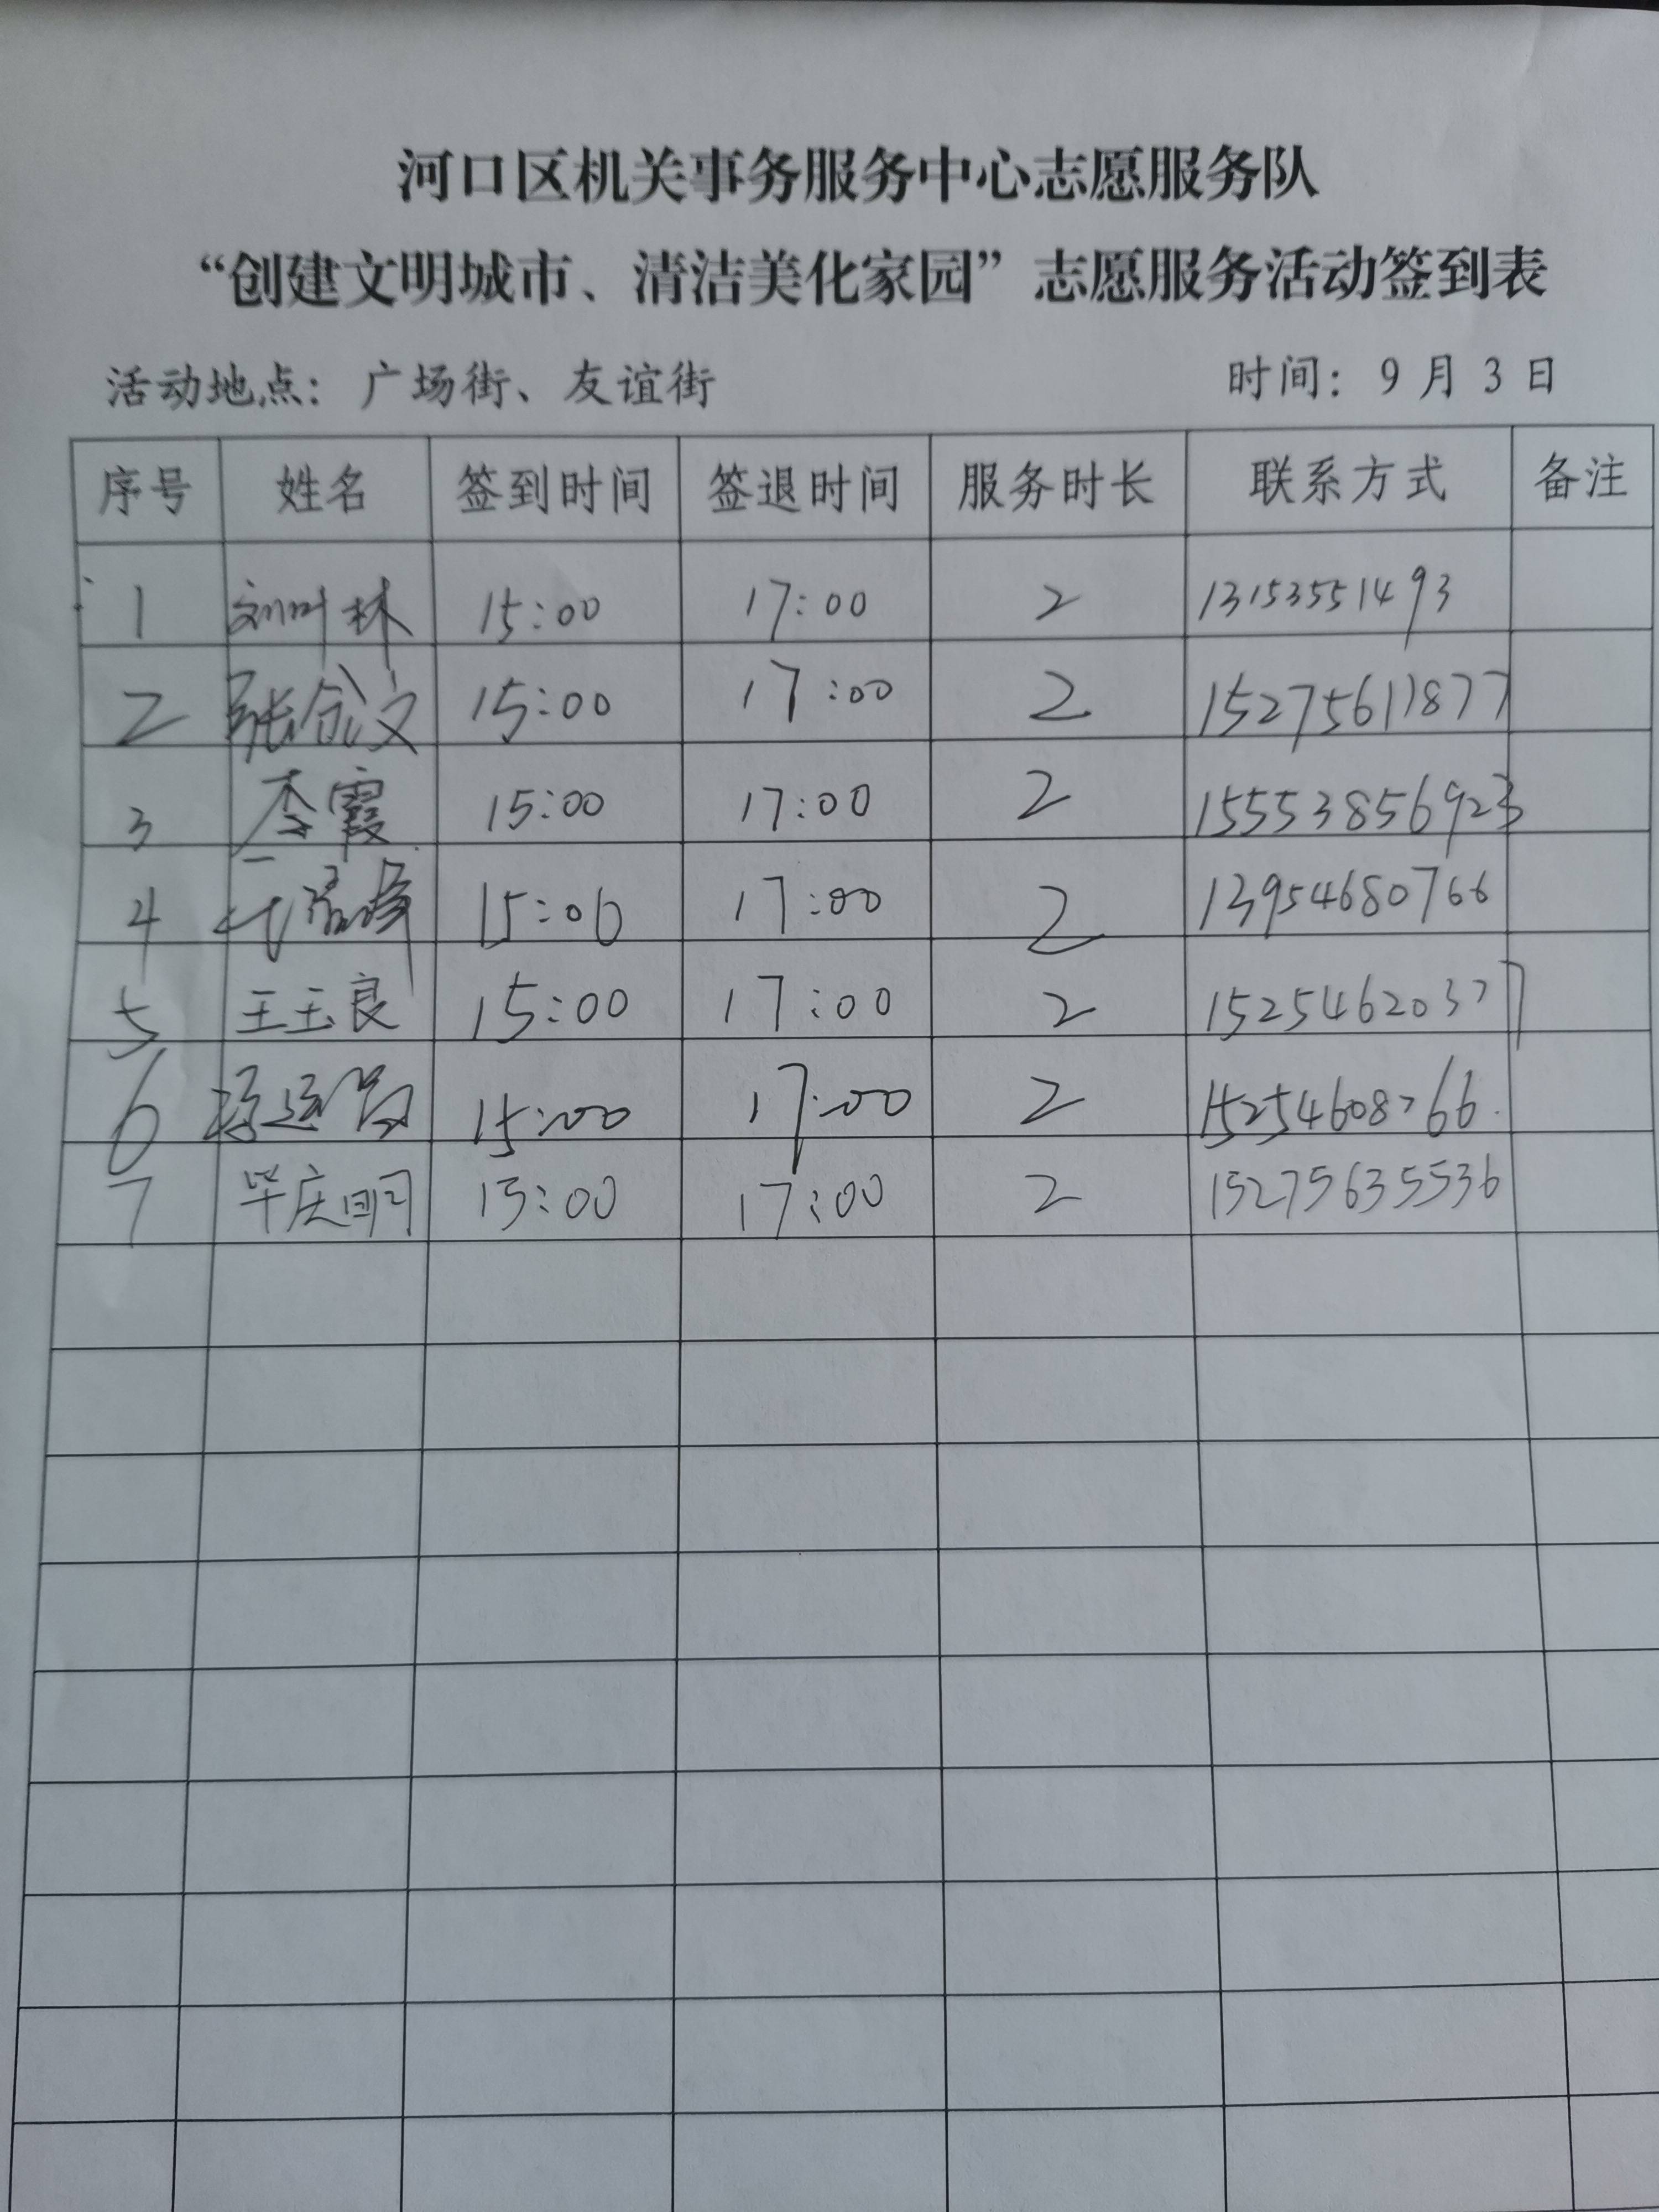 河口区机关事务服务中心志愿服务队
“创建文明城市、清洁美化家园”志愿服务活动签到表
活动地点：广场街、友谊街 时间：9月3日
序号 姓名 签到时间 签退时间 服务时长 联系方式 备注
1 刘叶林 15:00 17:00 2 13153551493
2 张 文 15:00 17:00 2 15275611877
3 李霞 15:00 17:00 2 15553856923
4 15:00 17:00 2 13954680766
5 王玉良 15:00 17:00 2 15254620377
6 15:00 17:00 2 15254608766
7 毕庆明 15:00 17:00 2 15275635536